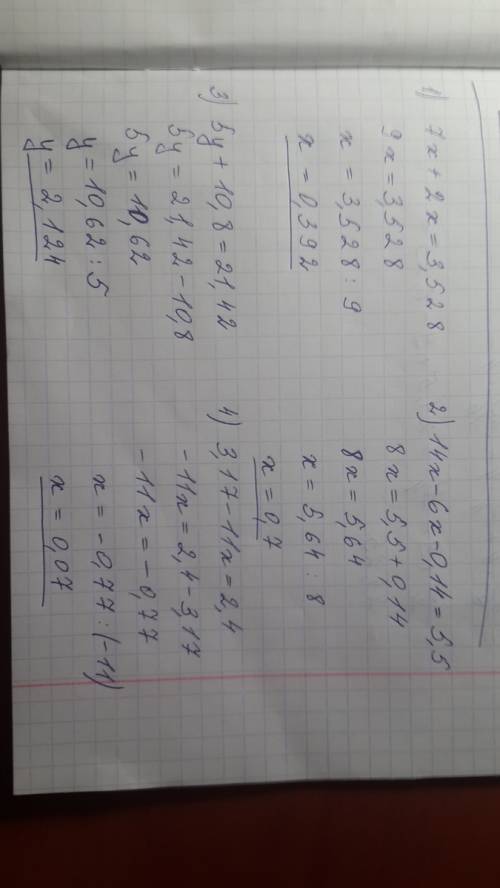 1) 7x + 2x = 3,528
9x = 3,528
x = 3,528 : 9
x = 0,392
2) 14x - 6x - 0,14 = 5,5
8x = 5,5 + 0,14
8x = 5,64
x = 5,64 : 8
x = 0,7
3) 5y + 10,8 = 21,42
5y = 21,42 - 10,8
5y = 10,62
y = 10,62 : 5
y = 2,124
4) 3,17 - 11x = 2,4
-11x = 2,4 - 3,17
-11x = -0,77
x = -0,77 : (-11)
x = 0,07